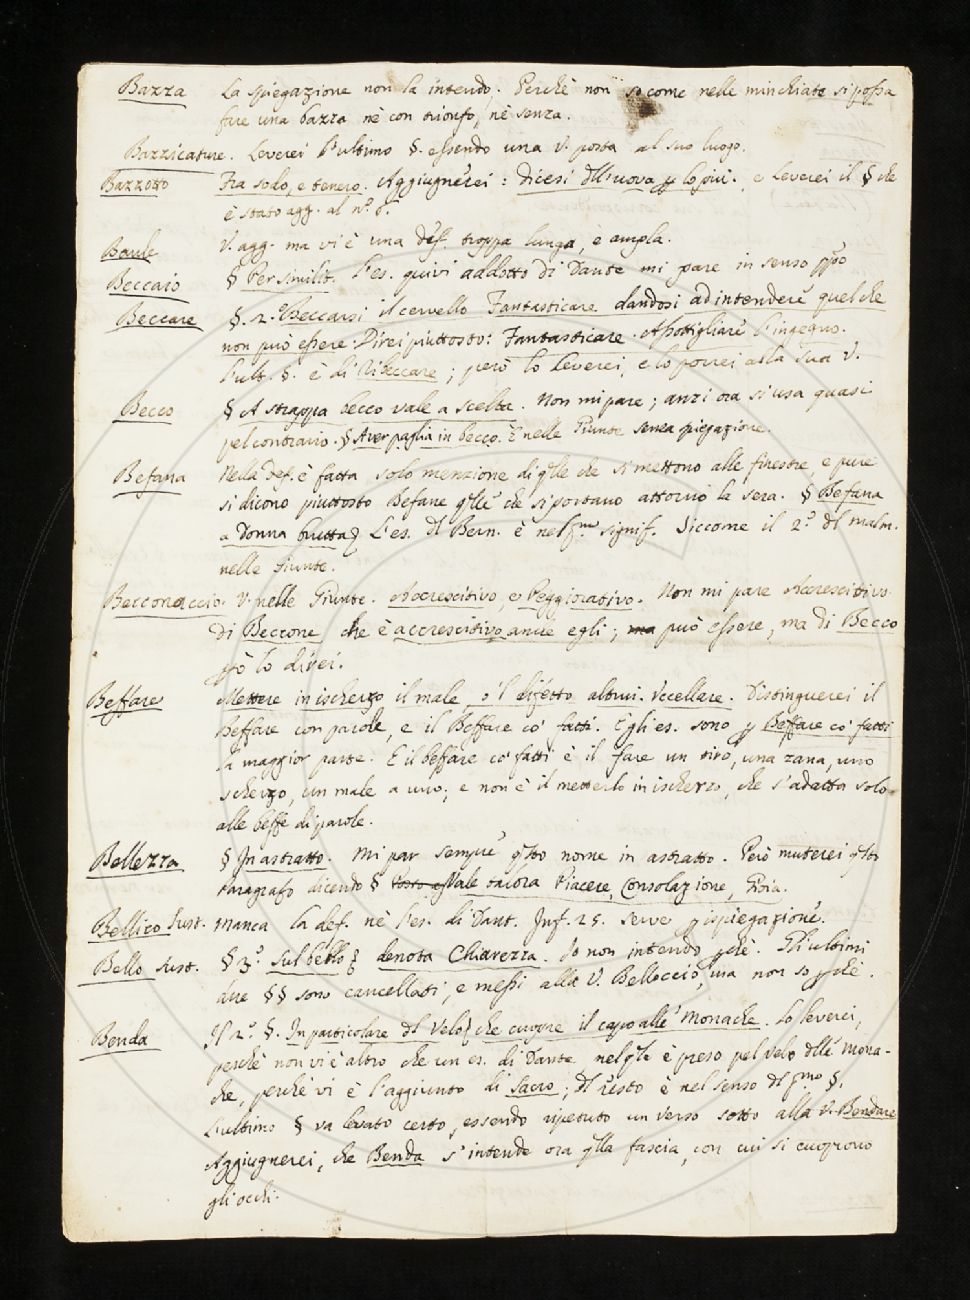 Bazza La spiegazione non la intendo. Perchè non so come nelle minchiate si possa
fare una bazza nè con trionfo, nè senza.
Bazzicature. Leverei l'ultimo §. essendo una V. posta al suo luogo.
Bazzotto Fra sodo, e tenero. Aggiugnerei: dicesi dll'uova p lo più. e Leverei il § che
è stato agg. al n.º 6.
Baule V. agg. ma vi è una def. troppa lunga, e ampla.
Beccaio § Per similit. L'es. quivi addotto di Dante mi pare in senso ppio
Beccare §. 2. Beccarsi il cervello Fantasticare dandosi ad intendere quel che
non può essere. Direi piuttosto: Fantasticare. Assottigliare l'ingegno.
L'ult. §. è di Ribeccare; però lo leverei, e lo porrei alla sua V.
Becco § A strappa becco vale a scelta. Non mi pare; anzi ora si usa quasi
pel contrario. § Aver paglia in becco. È nelle Giunte senza spiegazione.
Befana Nella def. è fatta solo menzione di qlle che si mettono alle finestre, e pure
si dicono piuttosto Befane qlle che si portano attorno la sera. § Befana
a Donna brutta L'es. dl Bern. è nel pmo signif. Siccome il 2.º dl Malm.
nelle Giunte.
Becconaccio. V. nelle Giunte. Accrescitivo, e Peggiorativo. Non mi pare Accrescitivo
di Beccone, che è accrescitivo anche egli; ma può essere, ma di Becco
pò lo direi.
Beffare Mettere in ischerzo il male, o 'l difetto altrui. Uccellare. Distinguerei il
Beffare con parole, e il Beffare co' fatti. E gli es. sono p Beffare co' fatti
la maggior parte. E il beffare co' fatti è il fare un tiro, una zana, uno
scherzo, un male a uno; e non è il metterlo in ischerzo, che s'adatta solo
alle beffe di parole.
Bellezza § In astratto. Mi par sempre qsto nome in astratto. Però muterei qsto
Paragrafo dicendo § Vale talora Piacere, Consolazione, Gioia.
Bellico Sust. Manca la def. nè l'es. di Dant. Inf. 25. serve p ispiegazione.
Bello Sust. § 3.º Sul bello denota Chiarezza. Io non intendo pchè. Gli ultimi
due §§ sono cancellati, e messi alla V. Belloccio, ma non so pchè.
Benda Il 2.º §. In particolare dl Velo, che cuopre il capo alle Monache. Lo leverei,
perchè non vi è altro che un es. di Dante nel qle è preso pel velo dlle Mona-
che, perchè vi è l'aggiunto di Sacro; dl resto è nel senso dl pmo §.
L'ultimo § va levato certo, essendo ripetuto un verso sotto alla V. Bendare
Aggiugnerei, che Benda s'intende ora qlla fascia, con cui si cuoprono
gli occhi.